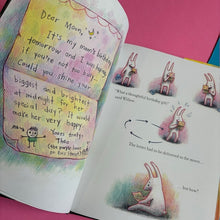 Dear Moon,
It's my mum's birthday
tomorrow and I was hoping,
if you're not too busy,
Could you shine your
biggest and brightest
at midnight for her
special day? It would
make her very happy.
Yours truly,
Theo
"What a thoughtful birthday gift,"
said Willow.
The letter had to be delivered to the moon...
but how?